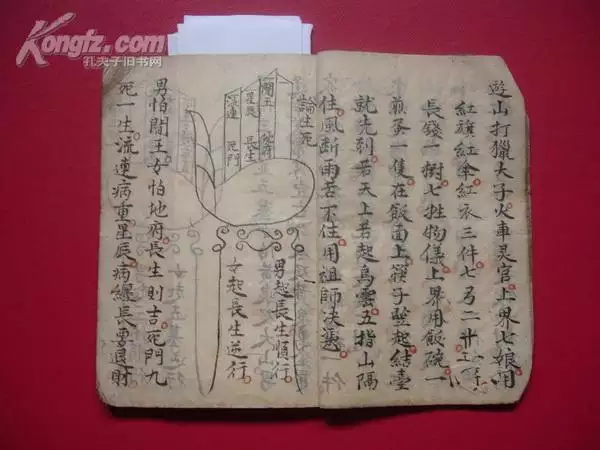 Kongfz.com
孔夫子旧书网
遊山打獵夫子火車灵官上界七娘用
紅旗紅傘紅衣三件七弓二廿
長錢一樹七牲物儀上界用飯碗一
煎蛋一隻在飯面上筷子竪起結臺
就先到若天上若起烏雲五指山隔
住風断雨若不住用祖師决
論生死
閻王
地府
星辰
長生
流連
死門
男起長生順行
女起長生逆行
男怕閻王女怕地府長生則吉死門九
死一生流連病重星辰病纏長要退財